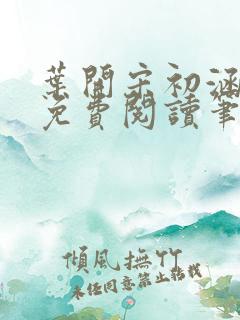 葉開宋初涵
免費閱讀筆
傾風撫竹
未經同意禁止轉載